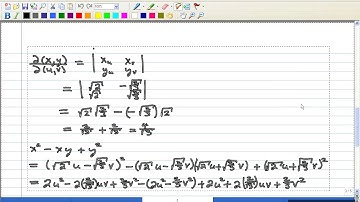 ∂(x,y)/∂(u,v) = | x_u x_v ; y_u y_v |
= | √2 -√(2/3) ; √2 √(2/3) |
= √2 √(2/3) - (-√(2/3)) √2
= 2/√3 + 2/√3 = 4/√3
x² - xy + y²
= (√2 u - √(2/3) v)² - (√2 u - √(2/3) v)(√2 u + √(2/3) v) + (√2 u + √(2/3) v)²
= 2u² - 2(2/√3)uv + 2/3 v² - (2u² - 2/3 v²) + 2u² + 2(2/√3)uv + 2/3 v²